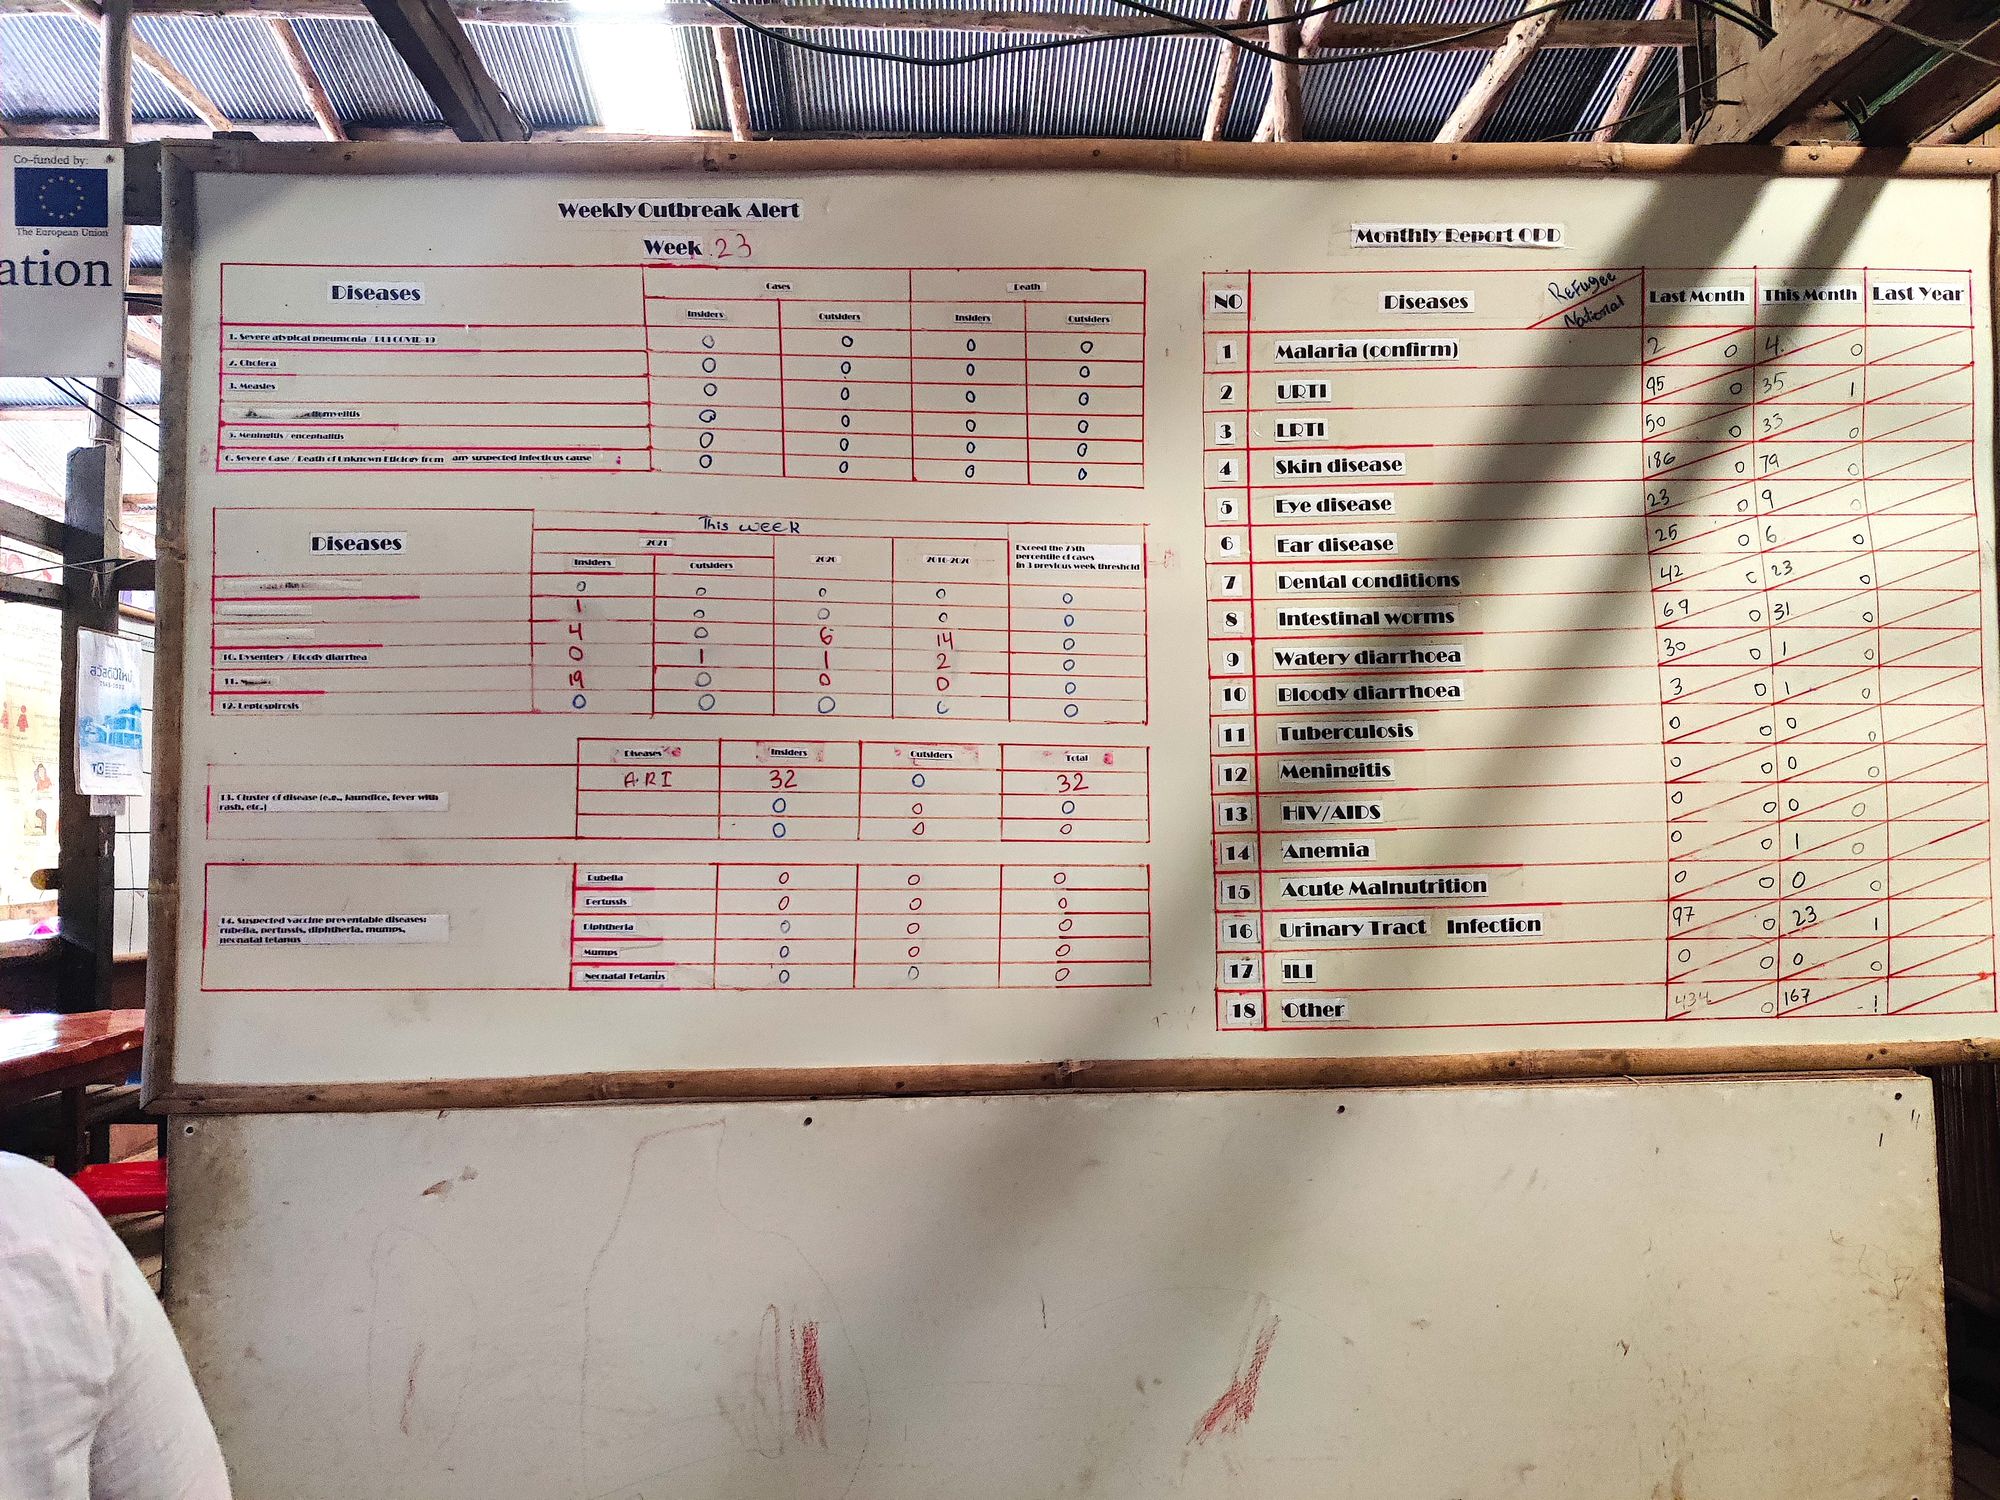 Co-funded by:
The European Union
ation
Weekly Outbreak Alert
Week 23
Diseases
Cases
Death
Insiders
Outsiders
Insiders
Outsiders
1. Severe atypical pneumonia / PUI COVID-19
0 0 0 0
2. Cholera
0 0 0 0
3. Measles
0 0 0 0
0 0 0 0
5. Meningitis / encephalitis
0 0 0 0
6. Severe Case / Death of Unknown Etiology from any suspected infectious cause
0 0 0 0
Diseases
This week
2021
2020
2016-2020
Exceed the 75th
percentile of cases
in 3 previous week threshold
Insiders
Outsiders
0 0 0 0 0
1 0 0 0 0
4 0 6 14 0
10. Dysentery / Bloody diarrhea 0 1 1 2 0
11. 19 0 0 0 0
12. Leptospirosis 0 0 0 0
Diseases Insiders Outsiders Total
A.R.I 32 0 32
13. Cluster of disease (e.g., jaundice, fever with
rash, etc.)
0 0 0
0 0 0
14. Suspected vaccine preventable diseases:
rubella, pertussis, diphtheria, mumps,
neonatal tetanus
Rubella 0 0 0
Pertussis 0 0 0
Diphtheria 0 0 0
Mumps 0 0 0
Neonatal Tetanus 0 0 0
Monthly Report OPD
NO Diseases Refugee National Last Month This Month Last Year
1 Malaria (confirm) 2 0 4 0
2 URTI 95 0 35 1
3 LRTI 50 0 33 0
4 Skin disease 186 0 79 0
5 Eye disease 23 0 9 0
6 Ear disease 25 0 6 0
7 Dental conditions 42 0 23 0
8 Intestinal worms 69 0 31 0
9 Watery diarrhoea 30 0 1 0
10 Bloody diarrhoea 3 0 1 0
11 Tuberculosis 0 0 0 0
12 Meningitis 0 0 0 0
13 HIV/AIDS 0 0 0 0
14 Anemia 0 0 1 0
15 Acute Malnutrition 0 0 0 0
16 Urinary Tract Infection 97 0 23 1
17 ILI 0 0 0 0
18 Other 434 0 167 1